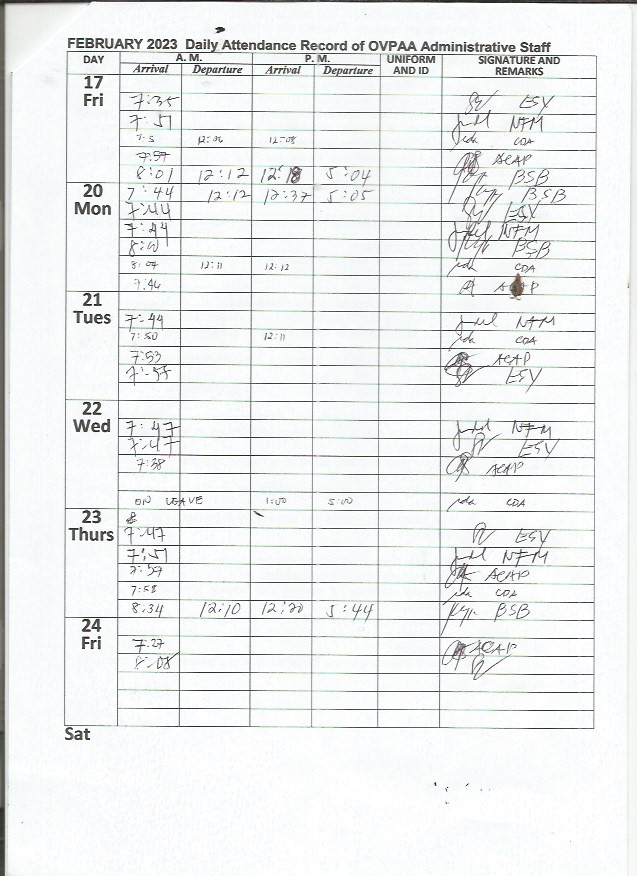 FEBRUARY 2023 Daily Attendance Record of OVPAA Administrative Staff
DAY A. M. P. M. UNIFORM AND ID SIGNATURE AND REMARKS
Arrival Departure Arrival Departure
17 Fri
7:35 ESY
7:51 NFM
12:06 12:08 CDA
7:57 ACAP
8:01 12:12 12:18 5:04 BSB
20 Mon
7:44 12:12 12:37 5:05 BSB
7:44 ESY
7:44 NFM
BSB
8:07 12:11 12:12 CDA
7:46
21 Tues
7:44 NFM
7:50 12:11 CDA
7:53 ACAP
7:57 ESY
22 Wed
7:47 NFM
7:47 ESY
7:38 ACAP
ON LEAVE 1:00 5:00 CDA
23 Thurs
7:47 ESY
7:51 NFM
7:59 ACAP
7:58 CDA
8:34 12:10 12:20 5:44 BSB
24 Fri
7:27 ACAP
8:08
Sat